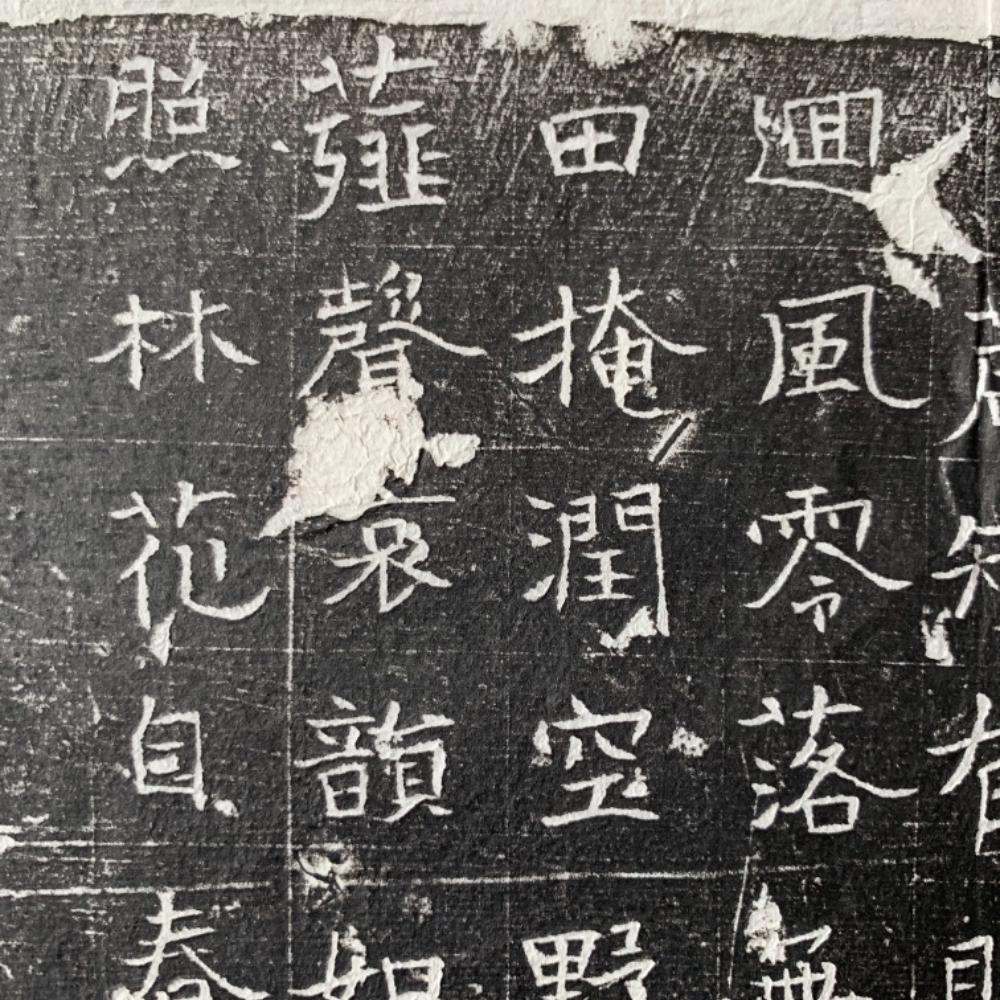 迴風零落無
田掩潤空野
薤聲哀韻如
照林花自春